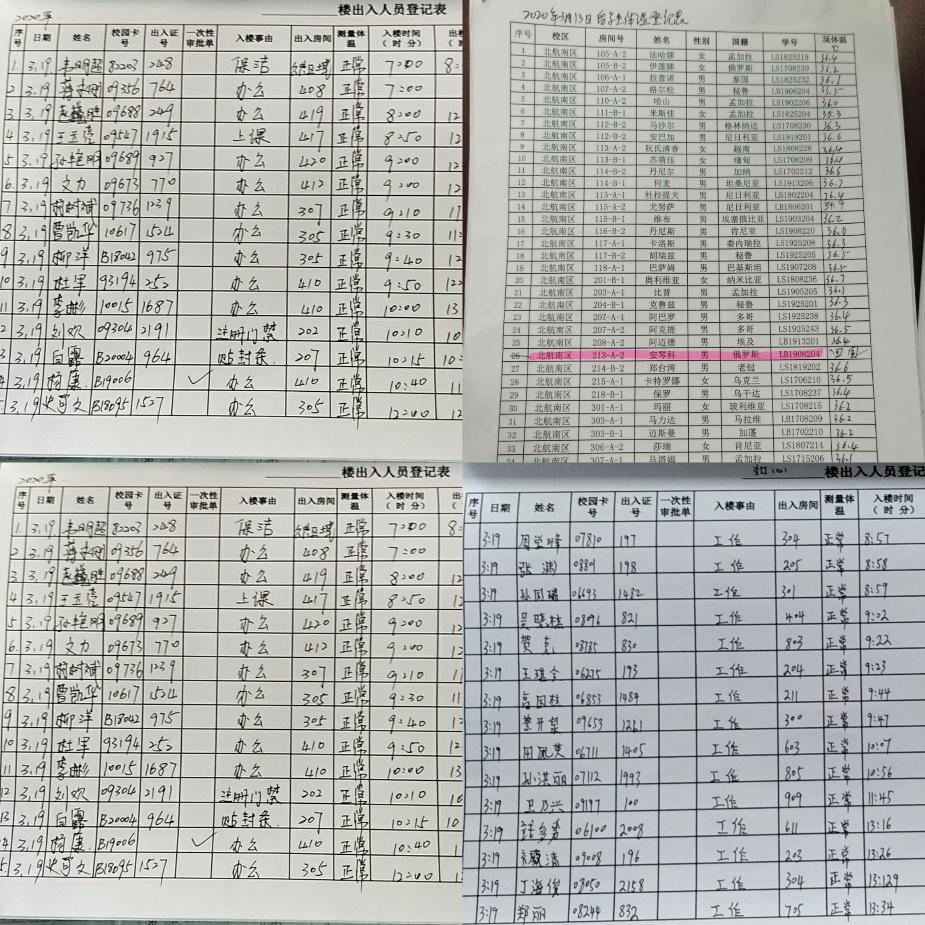 2020年
楼出入人员登记表
序号 日期 姓名 校园卡号 出入证号 一次性审批单 入楼事由 出入房间 测量体温 入楼时间(时 分)
1 3.19 82203 248 保洁 正常 7:00 8:
2 3.19 09356 764 办公 408 正常 7:00
3 3.19 09688 249 办公 419 正常 8:00 12
4 3.19 09547 1915 上课 417 正常 8:50 12
5 3.19 孙艳明 09689 927 办公 420 正常 9:00 12
6. 3.19 文力 09673 770 办公 412 正常 9:00 12
7 3.19 09736 1239 办公 307 正常 9:10 11
8 3.19 曹凯华 10617 1524 办公 305 正常 9:30 11:
9 3.19 柳洋 B18042 975 办公 305 正常 9:40 12
10 3.19 杜军 93194 252 办公 410 正常 9:50 12
11 3.19 李彬 10015 1687 办公 410 正常 10:00 13
2 3.19 刘欢 09304 2191 注册门禁 202 正常 10:10 10
3 3.19 白露 B20004 964 贴封条 207 正常 10:15 10:
4 3.19 杨康 B19006 ✓ 办公 410 正常 10:40 11
5 3.19 B18095 1527 办公 305 正常 12:00
2020年3月13日留学生体温登记表
序号 校区 房间号 姓名 性别 国籍 学号 现体温℃
1 北航南区 105-A-2 法哈娜 女 孟加拉 LS1825219 36.4
2 北航南区 105-B-2 伊莲娜 女 俄罗斯 LS1708239 36.2
3 北航南区 106-A-1 拉查诺 男 泰国 LS1825232 36.1
4 北航南区 107-A-2 格尔松 男 秘鲁 LB1906204 36.5
5 北航南区 110-A-2 哈山 男 孟加拉 LS1902206 36.0
6 北航南区 111-B-1 米斯佳 女 孟加拉 LS1825204 35.3
7 北航南区 112-B-2 马沙尔 男 格林纳达 LS1708230 36.3
8 北航南区 112-B-2 安巴加 男 尼日利亚 LS1919201 36.6
9 北航南区 113-A-2 阮氏清香 女 越南 LS1808228 36.4
10 北航南区 113-B-1 苏萌珏 女 缅甸 LS1708209 36.4
11 北航南区 114-B-2 丹尼尔 男 加纳 LS1702212 36.6
12 北航南区 114-B-1 何麦 男 坦桑尼亚 LS1913206 36.7
13 北航南区 115-A-1 杜拉提夫 男 尼日利亚 LS1802204 36.4
14 北航南区 115-B-2 尤努萨 男 尼日利亚 LB1806201
15 北航南区 115-B-1 维布 男 埃塞俄比亚 LS1903204 36.2
16 北航南区 116-B-2 丹尼斯 男 肯尼亚 LS1908220 36.0
17 北航南区 117-A-1 卡洛斯 男 委内瑞拉 LS1925208 36.3
18 北航南区 117-B-2 胡瑞兹 男 秘鲁 LS1925205 36.5
19 北航南区 118-A-1 巴萨姆 男 巴基斯坦 LS1907208 36.5
20 北航南区 201-B-1 奥利维亚 女 纳米比亚 LS1808236 36.7
21 北航南区 203-A-1 比普 男 孟加拉 LS1905205 36.1
22 北航南区 204-B-1 克鲁兹 男 秘鲁 LS1925201 36.3
23 北航南区 207-A-1 阿巴罗 男 多哥 LS1925238 36.4
24 北航南区 207-A-2 阿克提 男 多哥 LS1925243 36.5
25 北航南区 208-A-2 阿迈德 男 埃及 LB1913201 36.4
26 北航南区 213-A-2 安琴科 男 俄罗斯 LB1908204 回国
27 北航南区 214-B-2 郑台湾 男 老挝 LS1819202 36.6
28 北航南区 215-A-2 卡特罗娜 女 乌克兰 LS1706210 36.5
29 北航南区 218-B-1 保罗 男 乌干达 LS1708237 36.4
30 北航南区 301-A-1 玛丽 女 玻利维亚 LS1708215 36.2
31 北航南区 303-A-1 马力达 男 马拉维 LS1708209 36.2
32 北航南区 303-B-1 迈斯曼 男 加蓬 LB1702210 36.2
33 北航南区 306-A-2 莎瑞 女 肯尼亚 LS1807214 36.4
34 北航南区 307-A-1 马塔姆 男 孟加拉 LS1715206 36.1
2020年
楼出入人员登记表
序号 日期 姓名 校园卡号 出入证号 一次性审批单 入楼事由 出入房间 测量体温 入楼时间(时 分)
1 3.19 82203 248 保洁 正常 7:00 8:
2 3.19 09356 764 办公 408 正常 7:00
3 3.19 09688 249 办公 419 正常 8:00 12
4 3.19 09547 1915 上课 417 正常 8:50 12
5 3.19 孙艳明 09689 927 办公 420 正常 9:00 12
6. 3.19 文力 09673 770 办公 412 正常 9:00 12
7 3.19 09736 1239 办公 307 正常 9:10 11
8 3.19 曹凯华 10617 1524 办公 305 正常 9:30 11
9 3.19 柳洋 B18042 975 办公 305 正常 9:40 12
10 3.19 杜军 93194 252 办公 410 正常 9:50 12
11 3.19 李彬 10015 1687 办公 410 正常 10:00 13
12 3.19 刘欢 09304 2191 注册门禁 202 正常 10:10 10
13 3.19 白露 B20004 964 贴封条 207 正常 10:15 10
4 3.19 杨康 B19006 ✓ 办公 410 正常 10:40 11
5. 3.19 B18095 1527 办公 305 正常 12:00
楼出入人员登记表
序号 日期 姓名 校园卡号 出入证号 一次性审批单 入楼事由 出入房间 测量体温 入楼时间(时 分)
3:19 07810 197 工作 304 正常 8:57
3:19 张渊 08801 198 工作 205 正常 8:58
3:19 06693 1482 工作 301 正常 8:59
3:19 吴晓桂 08096 821 工作 404 正常 9:02
3:19 贺克 08735 830 工作 803 正常 9:22
3:19 06275 193 工作 204 正常 9:23
3:19 高国桂 06853 1484 工作 211 正常 9:44
3:19 09653 1261 工作 300 正常 9:47
3:19 田凤英 06711 1405 工作 603 正常 10:07
3:19 孙洪丽 07112 1993 工作 805 正常 10:56
3:19 卫乃兴 09197 100 工作 909 正常 11:45
3:19 钱多秀 06100 2008 工作 611 正常 13:16
3:19 09008 196 工作 203 正常 13:26
3:19 丁海俊 08050 2158 工作 304 正常 13:129
3:19 郑丽 08244 832 工作 705 正常 13:34